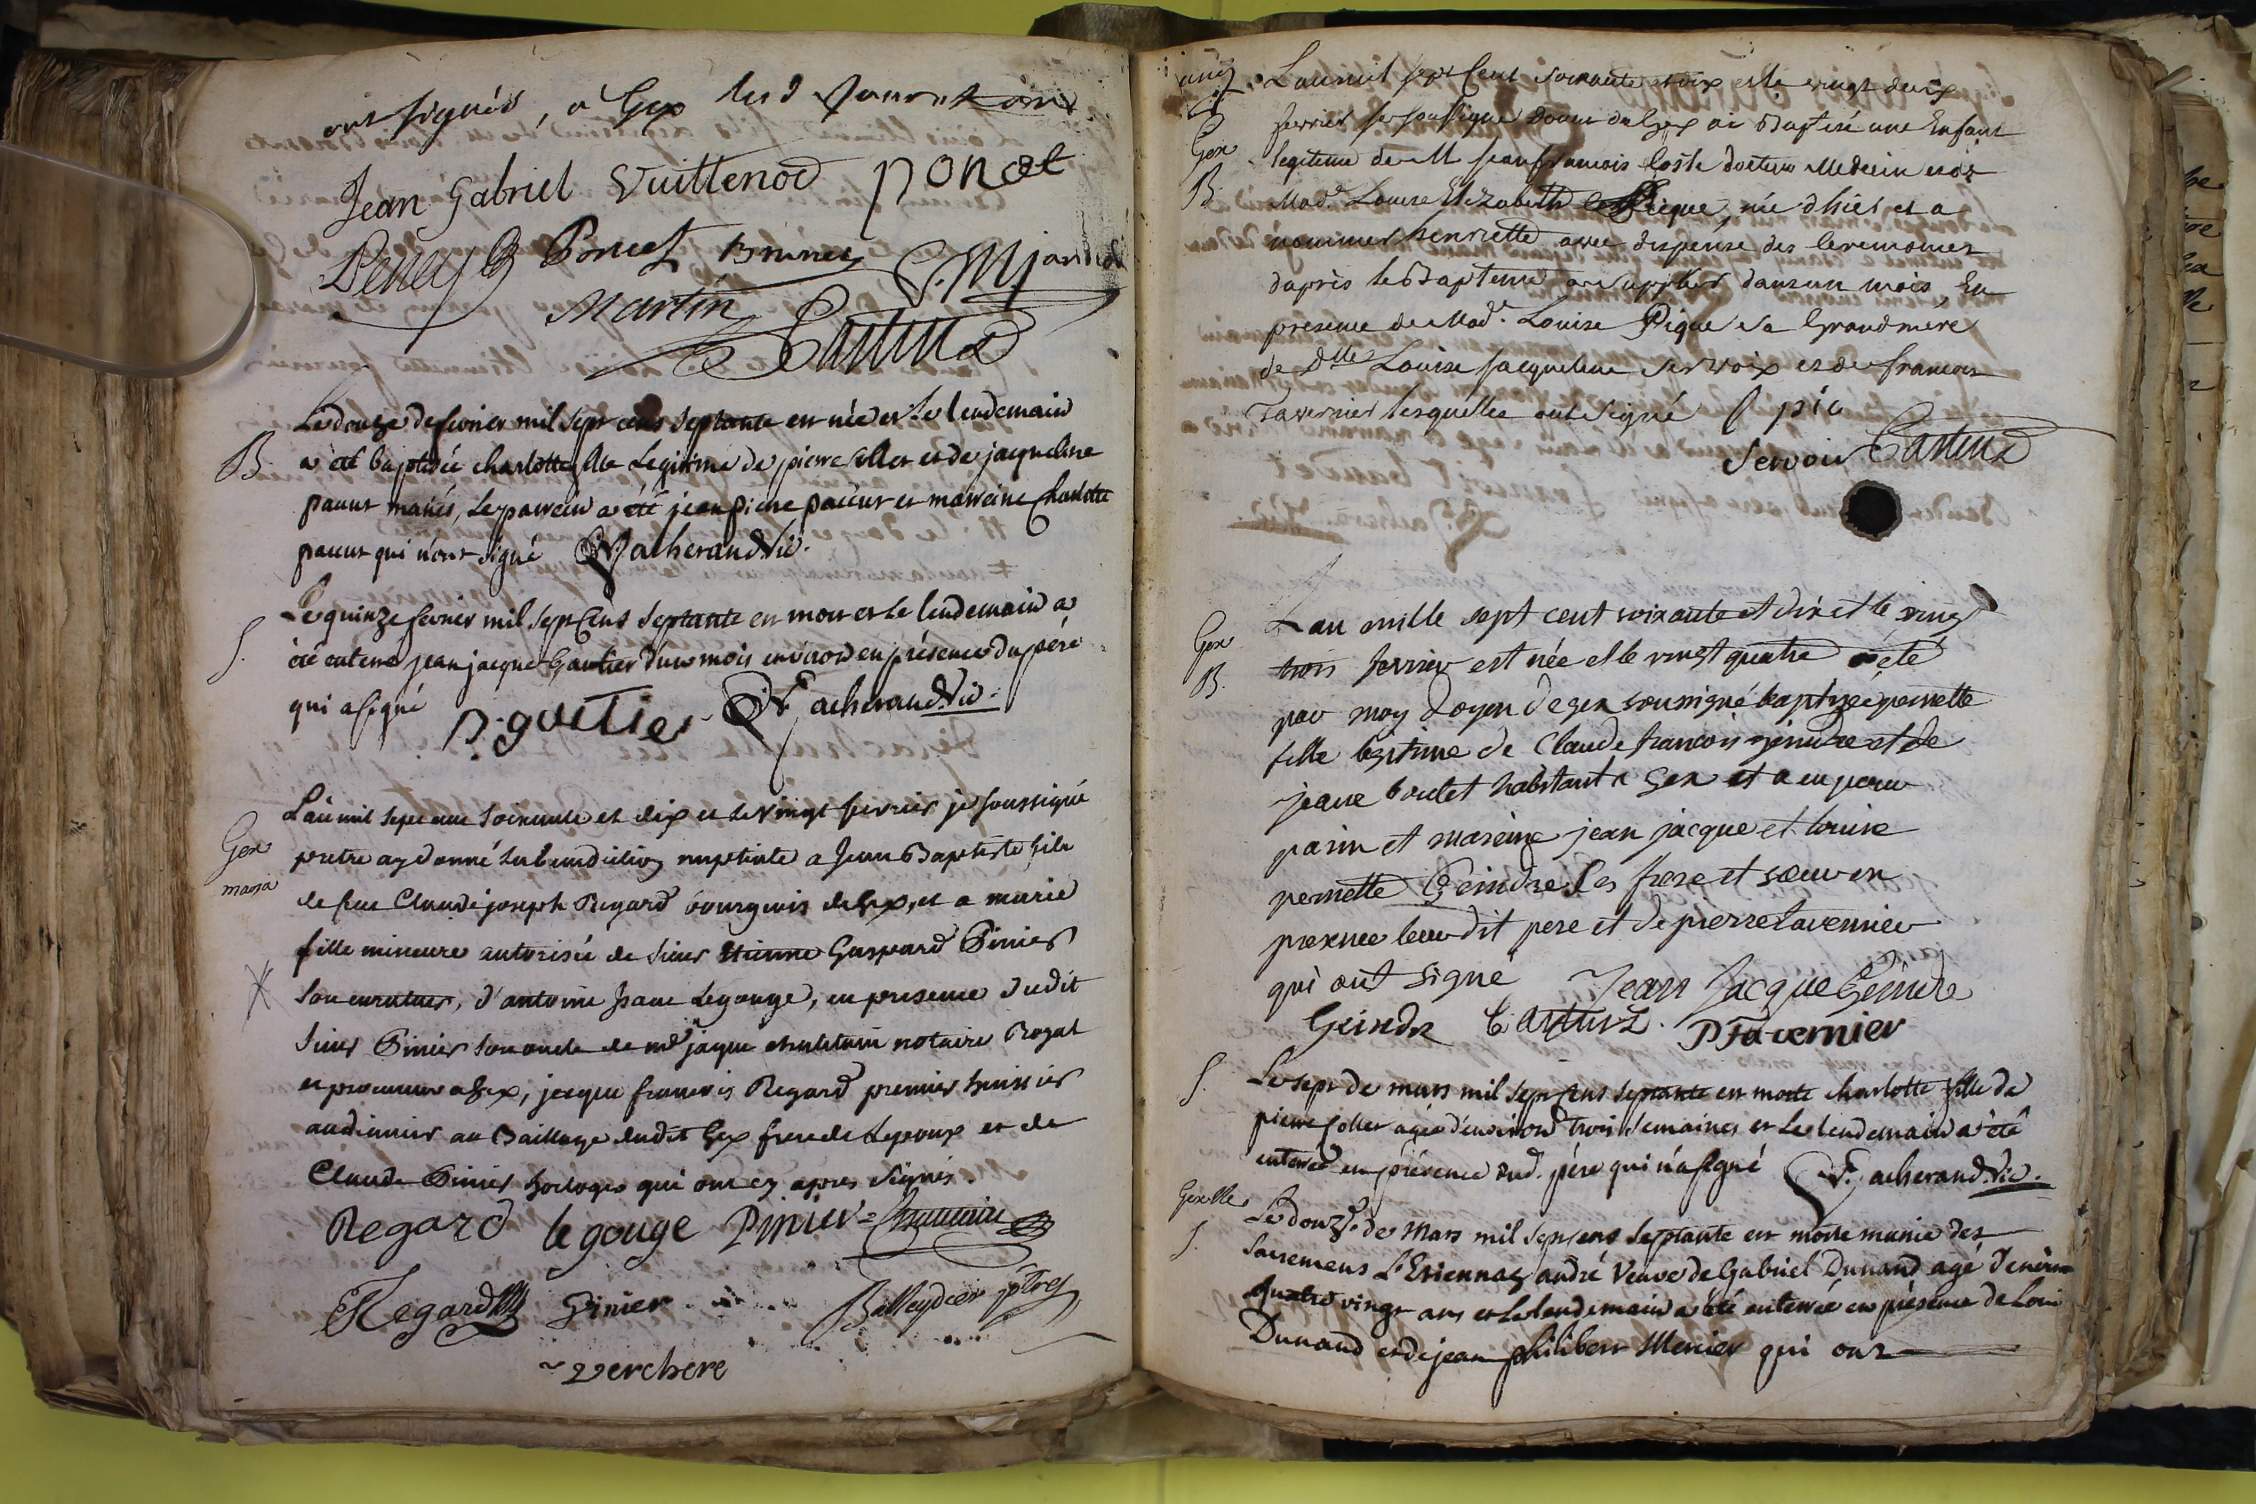 ont signés, a Gex les d
Jean Gabriel Vuillenod poncet
Poncet Brunet
Martin Castin
B. Le douze de fevrier mil sept cens septante est née et le lendemain
a été baptisée charlotte fille Legitime de pierre soller et de jacqueline
pacut mariés, le parrein a été jean pierre pacut et marreine charlotte
pacut qui n'ont signé acherand Vic.
S. Le quinze fevrier mil sept Cens septante est mort et le lendemain a
été enterré jean jacque Gautier d'un mois environ en présence du père
qui a signé P. goutier acherand. Vic.
L'an mil sept cent soixante et dix et le vingt fevrier je soussigné
Gex pretre ay donné la benediction nuptiale a Jean Baptiste fils
maria de feu Claude joseph Regard bourgeois de Gex, et a marie
fille mineure autorisée de sieur Etienne Gaspard Pinier
son curateur, d'antoine Isaac Legouge, en presence dudit
sieur Pinier son oncle de me jaque notaire Royal
et procureur a Gex, jacque francois Regard premier huissier
audiencier au Baillage dudit Gex frere de Lepoux et de
Claude Pinier horloger qui ont cy apres signés.
Regard le gouge Pinier
Regard Pinier Balleydier ptre
Verchere
L'an mil sept Cent soixante et dix et le vingt deux
fevrier je soussigné Doyen de Gex ai Baptisé une Enfant
Gex legitime de M jean francois Coste docteur Medecin et de
B. Mad.e Louise Elizabeth Pique, née d'hier et a
nommer henriette avec dispense des Ceremonies
d'après le Bapteme a suppléer dans un mois, En
presence de Mad.e Louise Pique sa Grand mere
de Dlle Louise Jacqueline Servoix et de francois
Tavernier lesquelles ont signé
Servoix Castin
Gex L'an mille sept cent soixante et dix et le vingt
B. trois fevrier est née et le vingt quatre a été
par moy Doyen de gex soussigné baptizée pernette
fille legitime de Claude francois geindre et de
jeane boulet habitant a Gex et a eu pour
parin et mareine jean jacque et louise
pernette Geindre ses frere et soeur en
presence leur dit pere et de pierre tavernier
qui ont signé Jean Jacque Geindre
Geindre Castin. P Tavernier
S. Le sept de mars mil sept Cens septante est morte charlotte fille de
pierre soller agée d'environ trois semaines et Le lendemain a été
enterrée en présence dud. père qui n'a signé acherand. Vic.
Gex Le douze de Mars mil sept cens septante est morte munie des
S. sacremens Etiennaz andré Veuve de Gabriel Dunand agé d'environ
quatre vingt ans et Le lendemain a été enterrée en présence de Loui
Dunand et de jean philibert Mercier qui ont